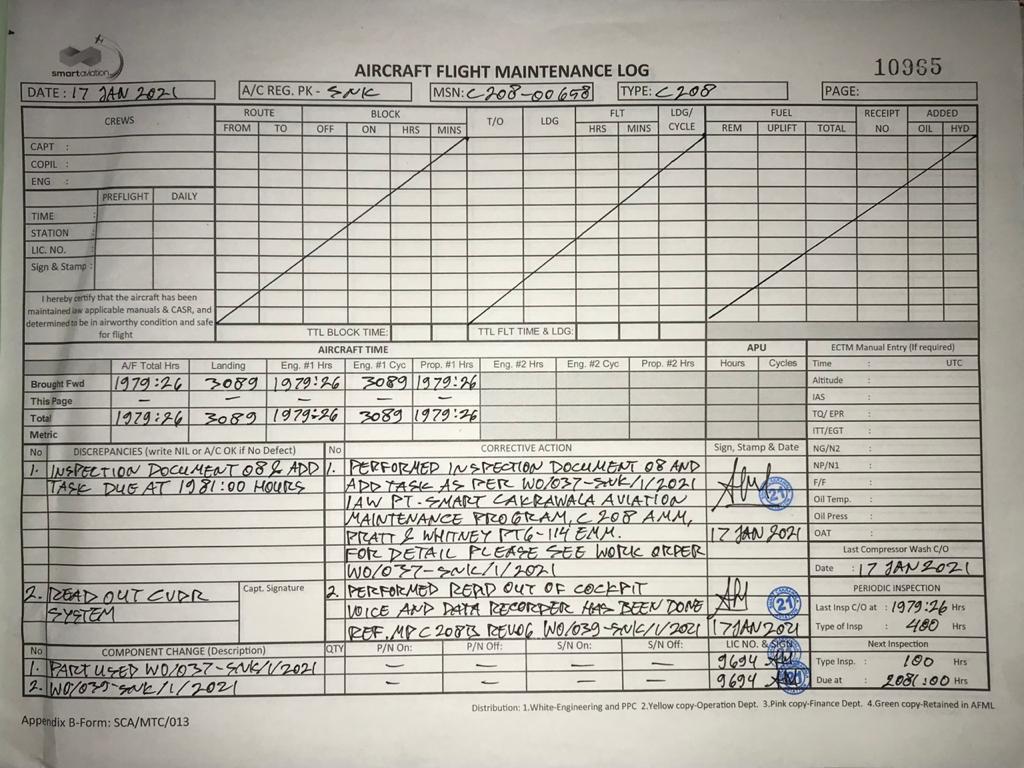 smartaviation
AIRCRAFT FLIGHT MAINTENANCE LOG
10965
DATE : 17 JAN 2021
A/C REG. PK - SNK
MSN: C208-00658
TYPE: C208
PAGE:
CREWS
ROUTE
BLOCK
T/O
LDG
FLT
LDG/
CYCLE
FUEL
RECEIPT
NO
ADDED
FROM TO OFF ON HRS MINS
HRS MINS
REM UPLIFT TOTAL
OIL HYD
CAPT :
COPIL :
ENG :
PREFLIGHT DAILY
TIME :
STATION
LIC. NO.
Sign & Stamp :
I hereby certify that the aircraft has been
maintained iaw applicable manuals & CASR, and
determined to be in airworthy condition and safe
for flight
TTL BLOCK TIME:
TTL FLT TIME & LDG:
AIRCRAFT TIME
APU
ECTM Manual Entry (If required)
A/F Total Hrs Landing Eng. #1 Hrs Eng. #1 Cyc Prop. #1 Hrs Eng. #2 Hrs Eng. #2 Cyc Prop. #2 Hrs Hours Cycles
Time : UTC
Brought Fwd 1979:26 3089 1979:26 3089 1979:26
Altitude :
This Page — — — — —
IAS :
Total 1979:26 3089 1979:26 3089 1979:26
TQ/ EPR :
Metric
ITT/EGT :
No DISCREPANCIES (write NIL or A/C OK if No Defect)
No CORRECTIVE ACTION
Sign, Stamp & Date
NG/N2 :
NP/N1 :
F/F :
Oil Temp. :
Oil Press :
OAT :
1. INSPECTION DOCUMENT 08 & ADD
TASK DUE AT 1981:00 HOURS
1. PERFORMED INSPECTION DOCUMENT 08 AND
ADD TASK AS PER WO/037-SNK/1/2021
IAW PT. SMART CAKRAWALA AVIATION
MAINTENANCE PROGRAM, C208 AMM,
PRATT & WHITNEY PT6-114 EMM.
FOR DETAIL PLEASE SEE WORK ORDER
WO/037-SNK/1/2021
21
17 JAN 2021
Last Compressor Wash C/O
Date : 17 JAN 2021
2. READ OUT CVDR
SYSTEM
Capt. Signature
2. PERFORMED READ OUT OF COCKPIT
VOICE AND DATA RECORDER HAS BEEN DONE
REF. MPC208B REV06 WO/039-SNK/1/2021
21
17 JAN 2021
PERIODIC INSPECTION
Last Insp C/O at : 1979:26 Hrs
Type of Insp : 400 Hrs
No COMPONENT CHANGE (Description) QTY P/N On: P/N Off: S/N On: S/N Off: LIC NO. & SIGN
Next Inspection
1. PART USED WO/037-SNK/1/2021 — — — — 9694
Type Insp. : 100 Hrs
2. WO/039-SNK/1/2021 — — — — 9694
Due at : 2081:00 Hrs
Distribution: 1.White-Engineering and PPC 2.Yellow copy-Operation Dept. 3.Pink copy-Finance Dept. 4.Green copy-Retained in AFML
Appendix B-Form: SCA/MTC/013